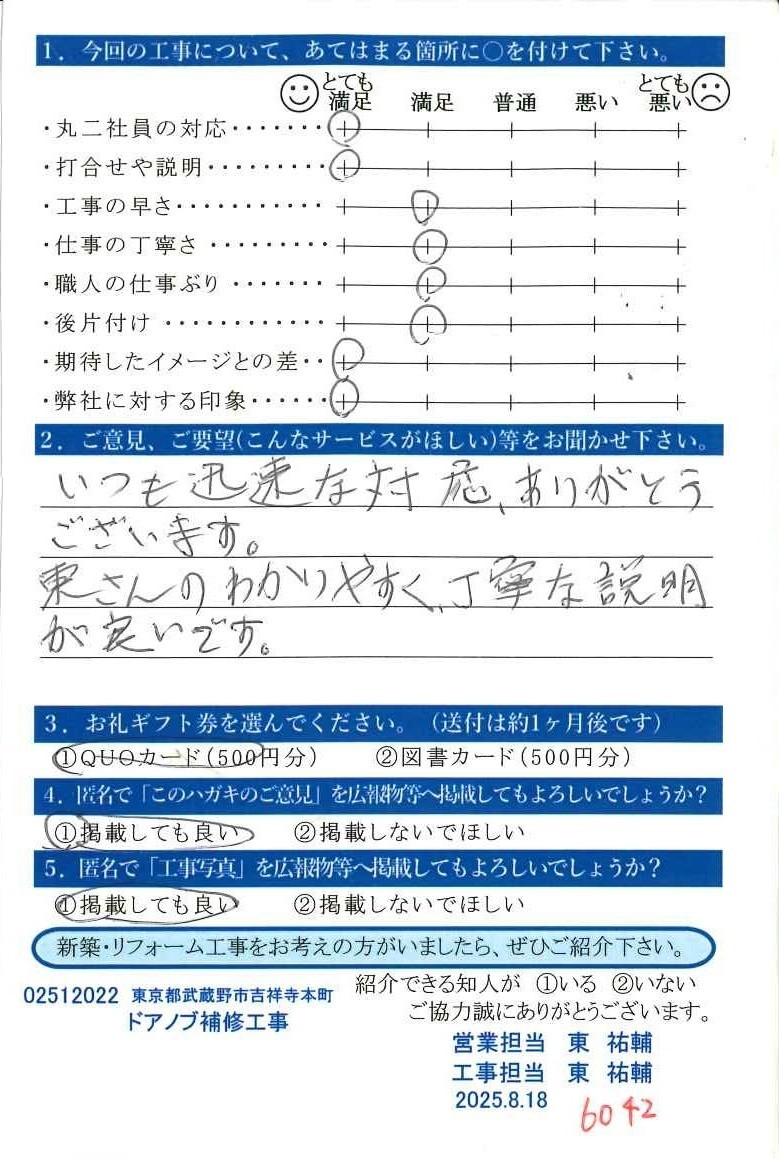 1．今回の工事について、あてはまる箇所に○を付けて下さい。
とても満足 満足 普通 悪い とても悪い
・丸二社員の対応・・・・・・・
・打合せや説明・・・・・・・・・
・工事の早さ・・・・・・・・・・・
・仕事の丁寧さ ・・・・・・・・・
・職人の仕事ぶり ・・・・・・・
・後片付け ・・・・・・・・・・・・
・期待したイメージとの差・・
・弊社に対する印象・・・・・・
2．ご意見、ご要望(こんなサービスがほしい)等をお聞かせ下さい。
いつも迅速な対応、ありがとう
ございます。
東さんのわかりやすく、丁寧な説明
が良いです。
3．お礼ギフト券を選んでください。（送付は約1ヶ月後です）
①QUOカード(500円分) ②図書カード(500円分)
4．匿名で「このハガキのご意見」を広報物等へ掲載してもよろしいでしょうか？
①掲載しても良い ②掲載しないでほしい
5．匿名で「工事写真」を広報物等へ掲載してもよろしいでしょうか？
①掲載しても良い ②掲載しないでほしい
新築・リフォーム工事をお考えの方がいましたら、ぜひご紹介下さい。
紹介できる知人が ①いる ②いない
02512022 東京都武蔵野市吉祥寺本町
ご協力誠にありがとうございます。
ドアノブ補修工事
営業担当 東 祐輔
工事担当 東 祐輔
2025.8.18
6042